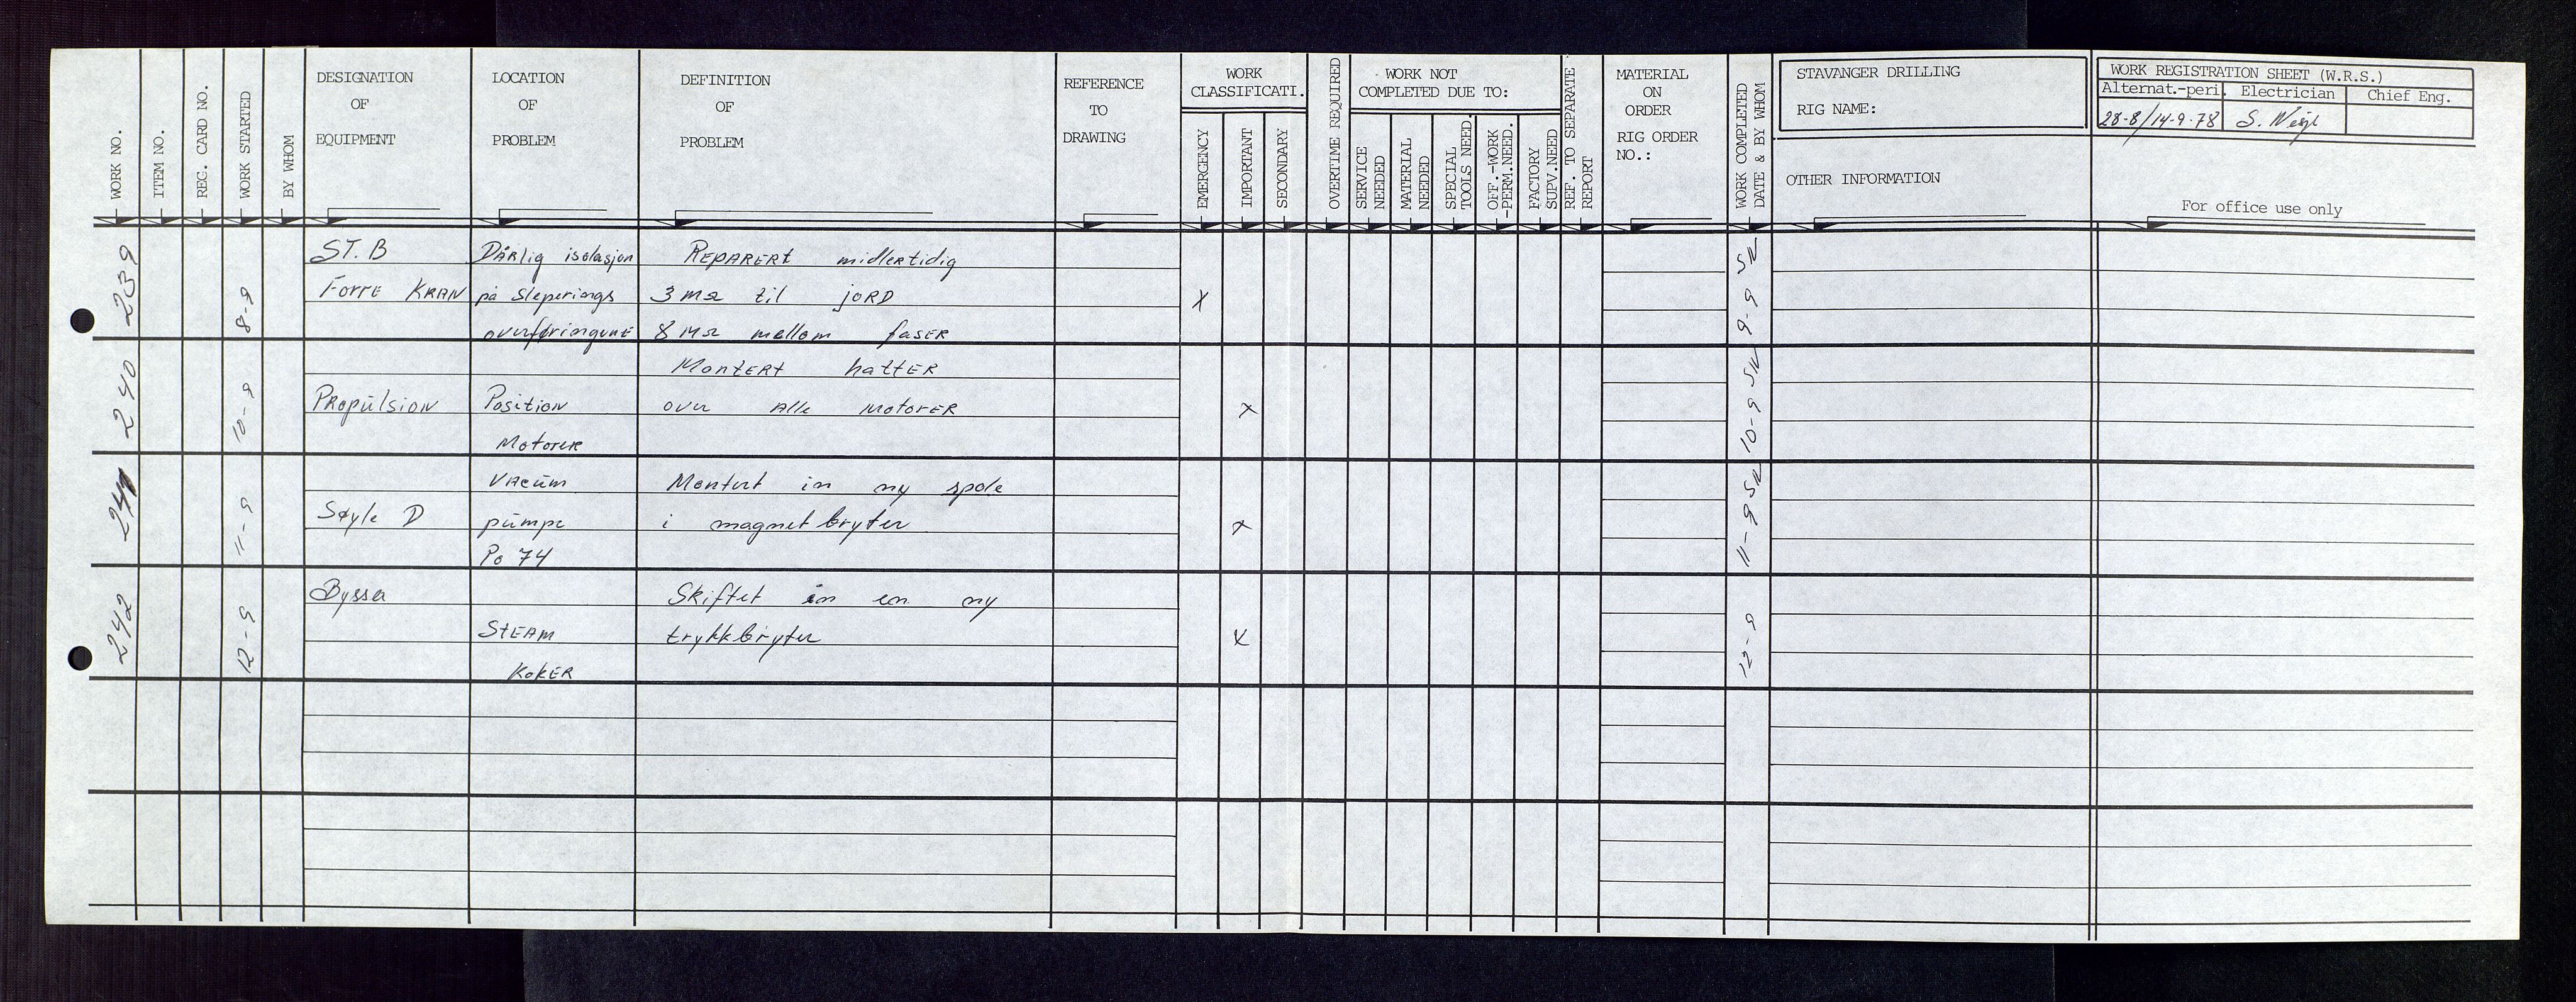 WORK NO.
ITEM NO.
REG. CARD NO.
WORK STARTED
BY WHOM
DESIGNATION
OF
EQUIPMENT
LOCATION
OF
PROBLEM
DEFINITION
OF
PROBLEM
REFERENCE
TO
DRAWING
WORK
CLASSIFICATI.
EMERGENCY
IMPORTANT
SECONDARY
OVERTIME REQUIRED
WORK NOT
COMPLETED DUE TO:
SERVICE
NEEDED
MATERIAL
NEEDED
SPECIAL
TOOLS NEED.
OFF.-WORK
-PERM.NEED.
FACTORY
SUPV.NEED
REF. TO SEPARATE
REPORT
MATERIAL
ON
ORDER
RIG ORDER
NO.:
WORK COMPLETED
DATE & BY WHOM
STAVANGER DRILLING
RIG NAME:
OTHER INFORMATION
WORK REGISTRATION SHEET (W.R.S.)
Alternat.-peri. Electrician Chief Eng.
28-8/14-9-78
For office use only
239
8-9
ST. B
Forre KRAN
Dårlig isolasjon
på Sleperings
overføringene
REPARERt midlertidig
3 MΩ til jORD
8 MΩ mellom faser
X
9-9 SN
240
10-9
Propulsion
Position
Motorer
MontERt hattER
over Alle MotorER
x
10-9 SN
241
11-9
Søyle D
Vacum
pumpe
Po 74
Montert in ny spole
i magnetbryter
x
11-9 SN
242
12-9
Byssa
STEAM
KOKER
Skiftet in en ny
trykkbryter
x
12-9